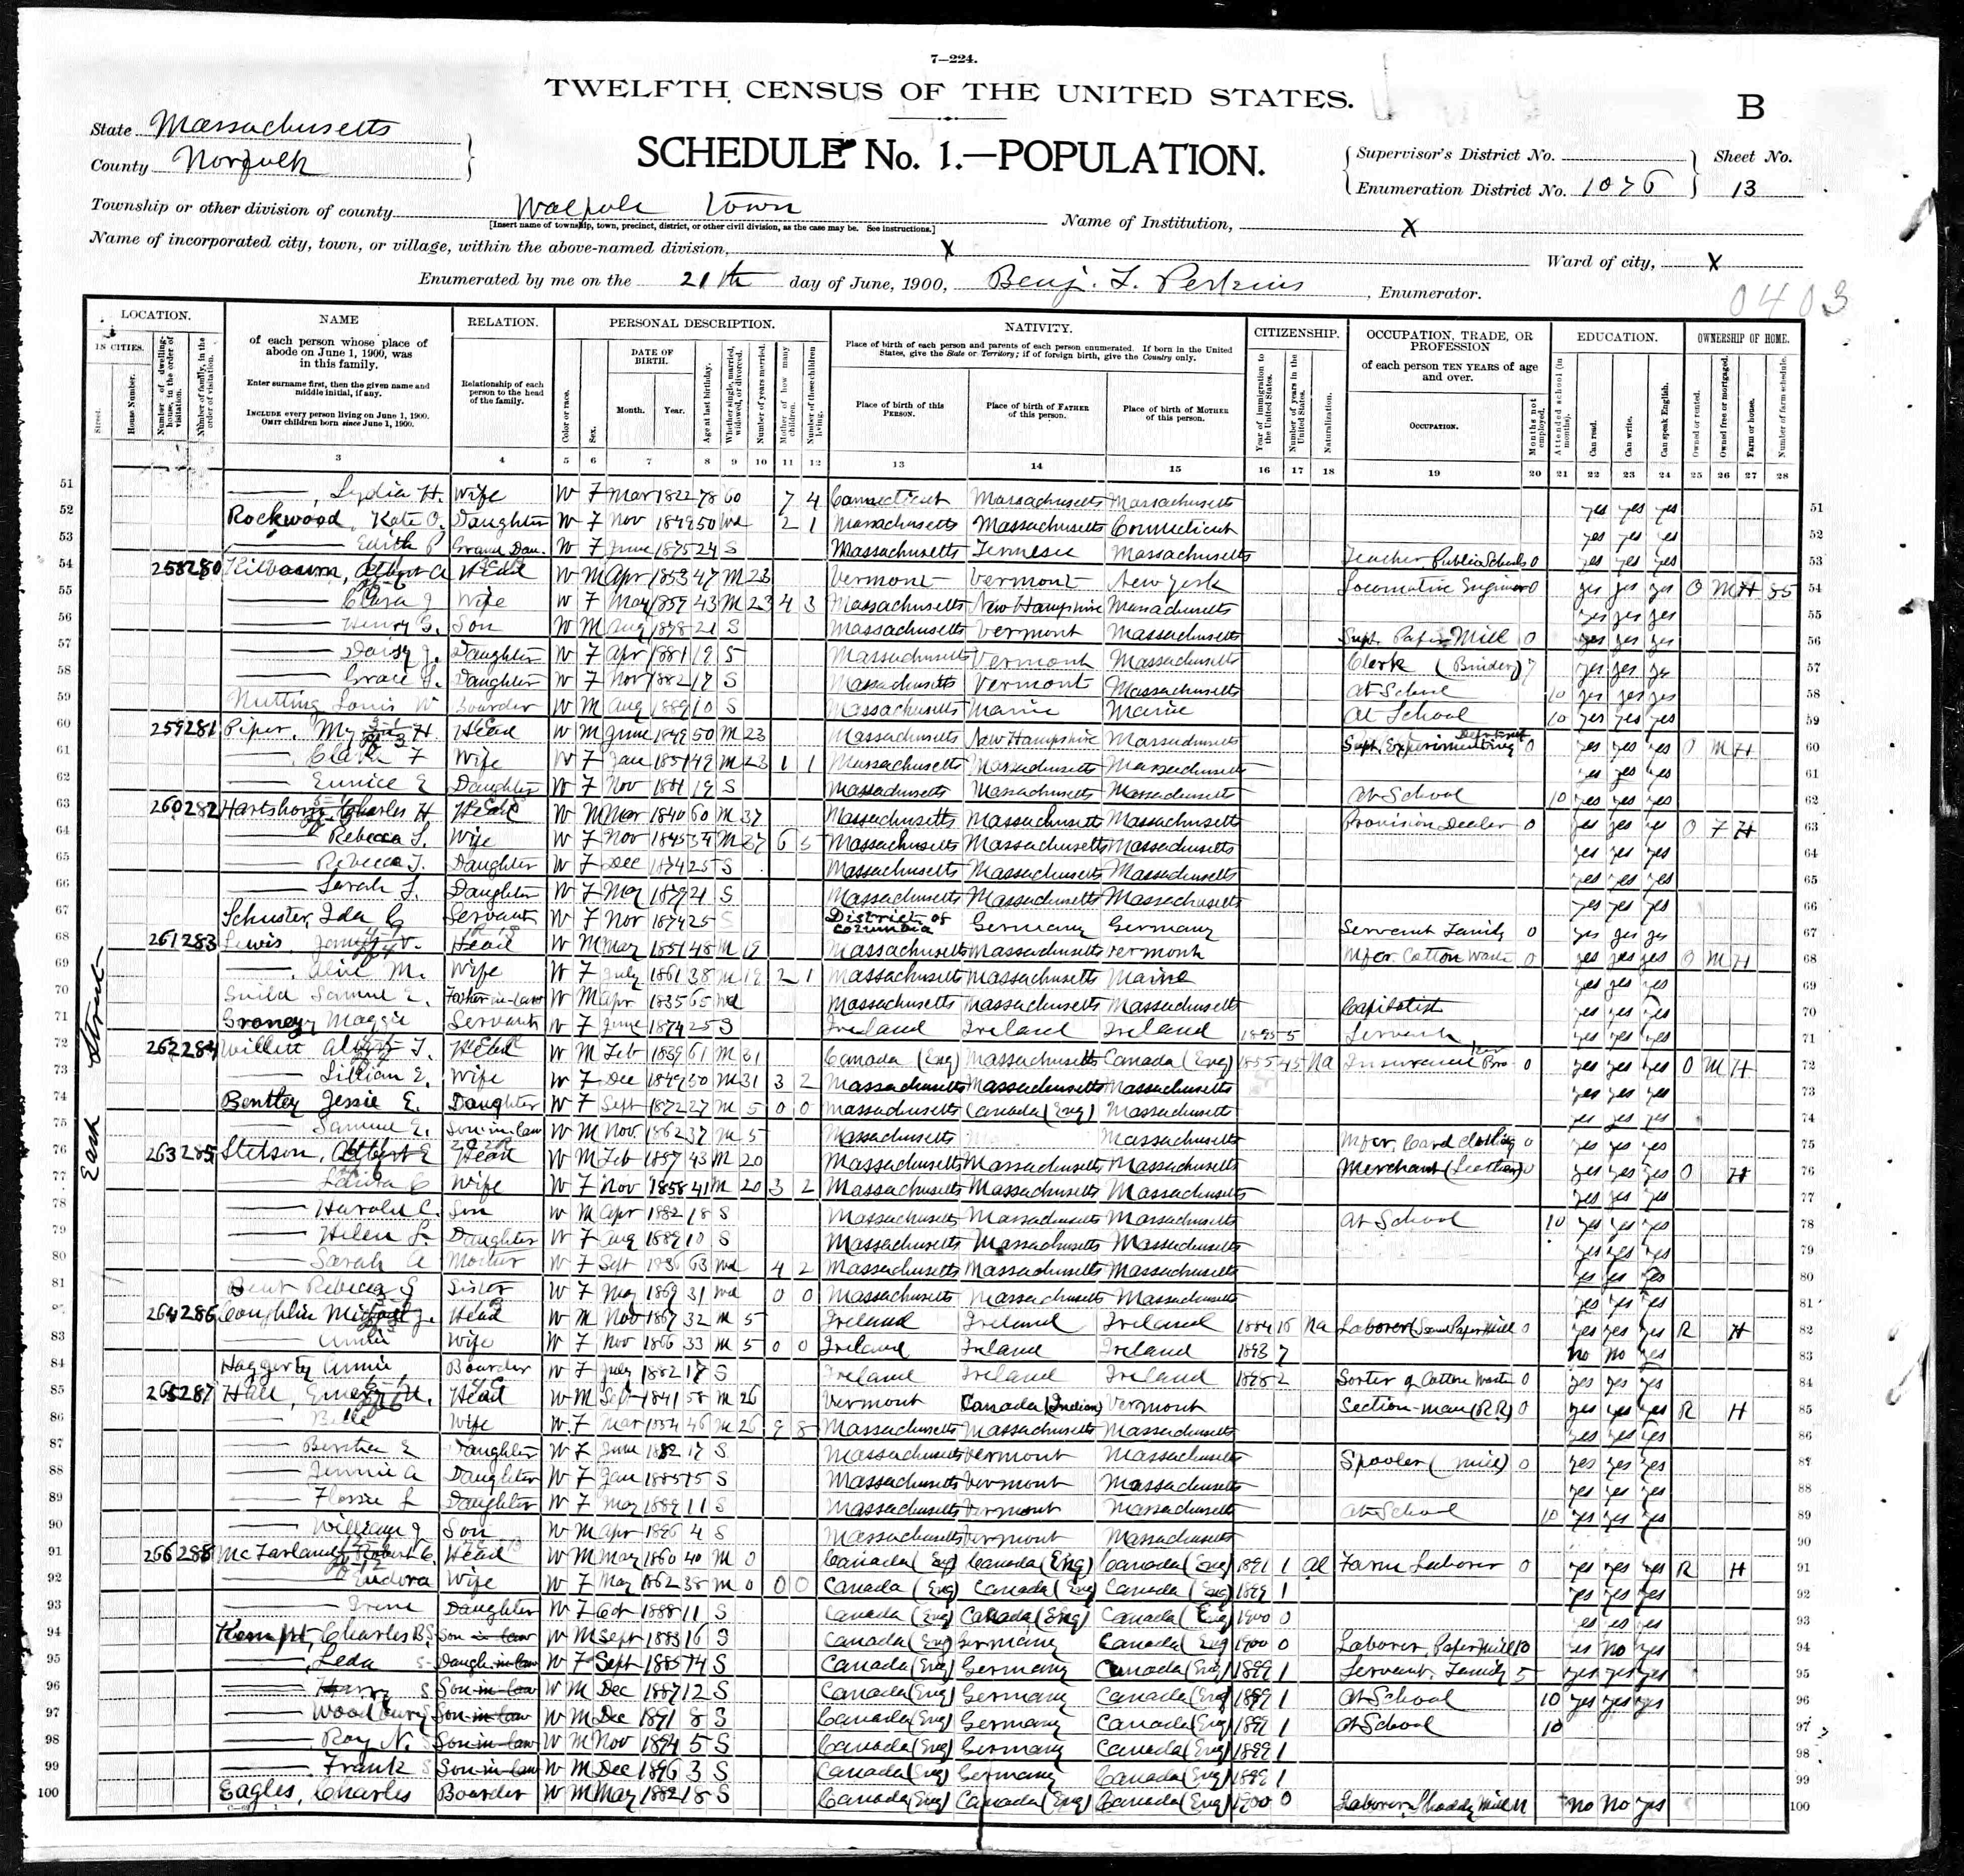 7—224.
TWELFTH CENSUS OF THE UNITED STATES.
B
State Massachusetts
County Norfolk
SCHEDULE No. 1.—POPULATION.
Supervisor's District No.
Enumeration District No. 1076
Sheet No.
13
Township or other division of county Walpole Town
[Insert name of township, town, precinct, district, or other civil division, as the case may be. See instructions.]
Name of Institution, X
Name of incorporated city, town, or village, within the above-named division, X
Ward of city, X
Enumerated by me on the 21th day of June, 1900, Benj. F. Perkins, Enumerator.
0403
LOCATION.
IN CITIES.
Street.
House Number.
Number of dwelling-house, in the order of visitation.
Number of family, in the order of visitation.
NAME
of each person whose place of abode on June 1, 1900, was in this family.
Enter surname first, then the given name and middle initial, if any.
INCLUDE every person living on June 1, 1900.
OMIT children born since June 1, 1900.
RELATION.
Relationship of each person to the head of the family.
PERSONAL DESCRIPTION.
Color or race.
Sex.
DATE OF BIRTH.
Month.
Year.
Age at last birthday.
Whether single, married, widowed, or divorced.
Number of years married.
Mother of how many children.
Number of these children living.
NATIVITY.
Place of birth of each person and parents of each person enumerated. If born in the United States, give the State or Territory; if of foreign birth, give the Country only.
Place of birth of this PERSON.
Place of birth of FATHER of this person.
Place of birth of MOTHER of this person.
CITIZENSHIP.
Year of immigration to the United States.
Number of years in the United States.
Naturalization.
OCCUPATION, TRADE, OR PROFESSION
of each person TEN YEARS of age and over.
OCCUPATION.
Months not employed.
EDUCATION.
Attended school (in months).
Can read.
Can write.
Can speak English.
OWNERSHIP OF HOME.
Owned or rented.
Owned free or mortgaged.
Farm or house.
Number of farm schedule.
3 4 5 6 7 8 9 10 11 12 13 14 15 16 17 18 19 20 21 22 23 24 25 26 27 28
East Street
51 Lydia H. Wife W F Mar 1822 78 7 4 Connecticut Massachusetts Massachusetts yes yes yes 51
52 Rockwood, Kate O. Daughter W F Nov 1849 50 Wd 2 1 Massachusetts Massachusetts Connecticut yes yes yes 52
53 Edith P Grand Dau. W F June 1875 24 S Massachusetts Massachusetts Teacher Public Schools 0 yes yes yes 53
54 258 280 Head W M Apr 1853 47 M 23 Vermont Vermont New York Locomotive Engineer 0 yes yes yes O M H 85 54
55 Clara J Wife W F May 43 M 23 4 3 Massachusetts New Hampshire Massachusetts yes yes yes 55
56 Henry G. Son W M Aug 1878 21 S Massachusetts Vermont Massachusetts Supt. Paper Mill 0 yes yes yes 56
57 Daisy J. Daughter W F Apr 1881 19 S Massachusetts Vermont Massachusetts Clerk (Bindery) 7 yes yes yes 57
58 Grace Daughter W F Nov 1882 17 S Massachusetts Vermont Massachusetts At School 10 yes yes yes 58
59 Nutting Louis W Boarder W M Aug 1889 10 S Massachusetts Maine Maine At School 10 yes yes yes 59
60 259 281 Piper, H. Head W M June 1849 50 M 23 Massachusetts New Hampshire Massachusetts Supt. Experimenting 0 yes yes yes O M H 60
61 Clara F Wife W F Jan 1851 49 M 23 1 1 Massachusetts Massachusetts Massachusetts yes yes yes 61
62 Eunice E Daughter W F Nov 19 S Massachusetts Massachusetts Massachusetts At School 10 yes yes yes 62
63 260 282 Hartshorn, Charles H Head W M Mar 1840 60 M 37 Massachusetts Massachusetts Massachusetts Provision Dealer 0 yes yes yes O F H 63
64 Rebecca Wife W F Nov 1845 54 M 37 6 5 Massachusetts Massachusetts Massachusetts yes yes yes 64
65 Rebecca Daughter W F Dec 1874 25 S Massachusetts Massachusetts Massachusetts yes yes yes 65
66 Sarah Daughter W F May 1879 21 S Massachusetts Massachusetts Massachusetts yes yes yes 66
67 Schuster, Ida G Servant W F Nov 1874 25 S District of Columbia Germany Germany Servant Family 0 yes yes yes 67
68 261 283 Lewis, Head W M May 1851 48 M 19 Massachusetts Massachusetts Vermont Mfer. Cotton Waste 0 yes yes yes O M H 68
69 Alice M. Wife W F July 1861 38 M 19 2 1 Massachusetts Massachusetts Maine yes yes yes 69
70 Guild Samuel E. Father-in-law W M Apr 1835 65 Wd Massachusetts Massachusetts Massachusetts Capitalist yes yes yes 70
71 Maggie Servant W F June 1874 25 S Ireland Ireland Ireland 1895 5 Servant yes yes yes 71
72 262 284 Willett Head W M Feb 1839 61 M 31 Canada (Eng) Massachusetts Canada (Eng) 1855 45 Na Insurance Broker 0 yes yes yes O M H 72
73 Lillian E. Wife W F Dec 1849 50 M 31 3 2 Massachusetts Massachusetts Massachusetts yes yes yes 73
74 Bentley Jessie E. Daughter W F Sept 1872 27 M 5 0 0 Massachusetts Canada (Eng) Massachusetts yes yes yes 74
75 Samuel E. Son-in-law W M Nov. 1862 37 M 5 Massachusetts Massachusetts Mfer. Card Clothing 0 yes yes yes 75
76 263 285 Stetson, Albert E Head W M Feb 1857 43 M 20 Massachusetts Massachusetts Massachusetts Merchant (Leather) 0 yes yes yes O H 76
77 Laura C Wife W F Nov 1858 41 M 20 3 2 Massachusetts Massachusetts Massachusetts yes yes yes 77
78 Harold C. Son W M Apr 1882 18 S Massachusetts Massachusetts Massachusetts At School 10 yes yes yes 78
79 Helen L. Daughter W F Aug 1889 10 S Massachusetts Massachusetts Massachusetts yes yes yes 79
80 Sarah A Mother W F Sept 1836 63 Wd 4 2 Massachusetts Massachusetts Massachusetts yes yes yes 80
81 Bent Rebecca Sister W F May 1869 31 Wd 0 0 Massachusetts Massachusetts Massachusetts yes yes yes 81
264 286 Coughlin Michael J. Head W M Nov 1867 32 M 5 Ireland Ireland Ireland 1884 16 Na Laborer Paper Mill 0 yes yes yes R H 82
83 Annie Wife W F Nov 1866 33 M 5 0 0 Ireland Ireland Ireland 1893 7 No No yes 83
84 Haggerty Annie Boarder W F July 1882 17 S Ireland Ireland Ireland 1898 2 Sorter of Cotton Waste 0 yes yes yes 84
85 265 287 Hall, Emery M. Head W M Sept 1841 58 M 26 Vermont Canada (Indian) Vermont Section-man (R.R) 0 yes yes yes R H 85
86 Belle Wife W F Mar 1854 46 M 26 9 8 Massachusetts Massachusetts Massachusetts yes yes yes 86
87 Bertha E Daughter W F June 1882 17 S Massachusetts Vermont Massachusetts Spooler (Mill) 0 yes yes yes 87
88 Jennie A Daughter W F Jan 1885 15 S Massachusetts Vermont Massachusetts yes yes yes 88
89 Flossie L Daughter W F May 1889 11 S Massachusetts Vermont Massachusetts At School 10 yes yes yes 89
90 William J Son W M Apr 1896 4 S Massachusetts Vermont Massachusetts 90
91 266 288 McFarland, Robert C. Head W M May 1860 40 M 0 Canada (Eng) Canada (Eng) Canada (Eng) 1 Al Farm Laborer 0 yes yes yes R H 91
92 Eudora Wife W F May 1862 38 M 0 0 0 Canada (Eng) Canada (Eng) Canada (Eng) 1899 1 yes yes yes 92
93 Irene Daughter W F Oct 1888 11 S Canada (Eng) Canada (Eng) Canada (Eng) 1900 0 yes yes yes 93
94 Kempt, Charles B. Son in law W M Sept 1883 16 S Canada (Eng) Germany Canada (Eng) 1900 0 Laborer, Paper Mill 10 yes No yes 94
95 Leda Daugh-in-law W F Sept 1885 14 S Canada (Eng) Germany Canada (Eng) 1899 1 Servant, Family 5 yes yes yes 95
96 Harry Son-in-law W M Dec 1887 12 S Canada (Eng) Germany Canada (Eng) 1899 1 At School 10 yes yes yes 96
97 Woodbury Son-in-law W M Dec 1891 8 S Canada (Eng) Germany Canada (Eng) 1899 1 At School 10 97
98 Ray N. Son-in-law W M Nov 1894 5 S Canada (Eng) Germany Canada (Eng) 1899 1 98
99 Frank Son-in-law W M Dec 1896 3 S Canada (Eng) Germany Canada (Eng) 1899 1 99
100 Eagles, Charles Boarder W M May 1882 18 S Canada (Eng) Canada (Eng) Canada (Eng) 1900 0 Laborer, Shoddy Mill No No yes 100